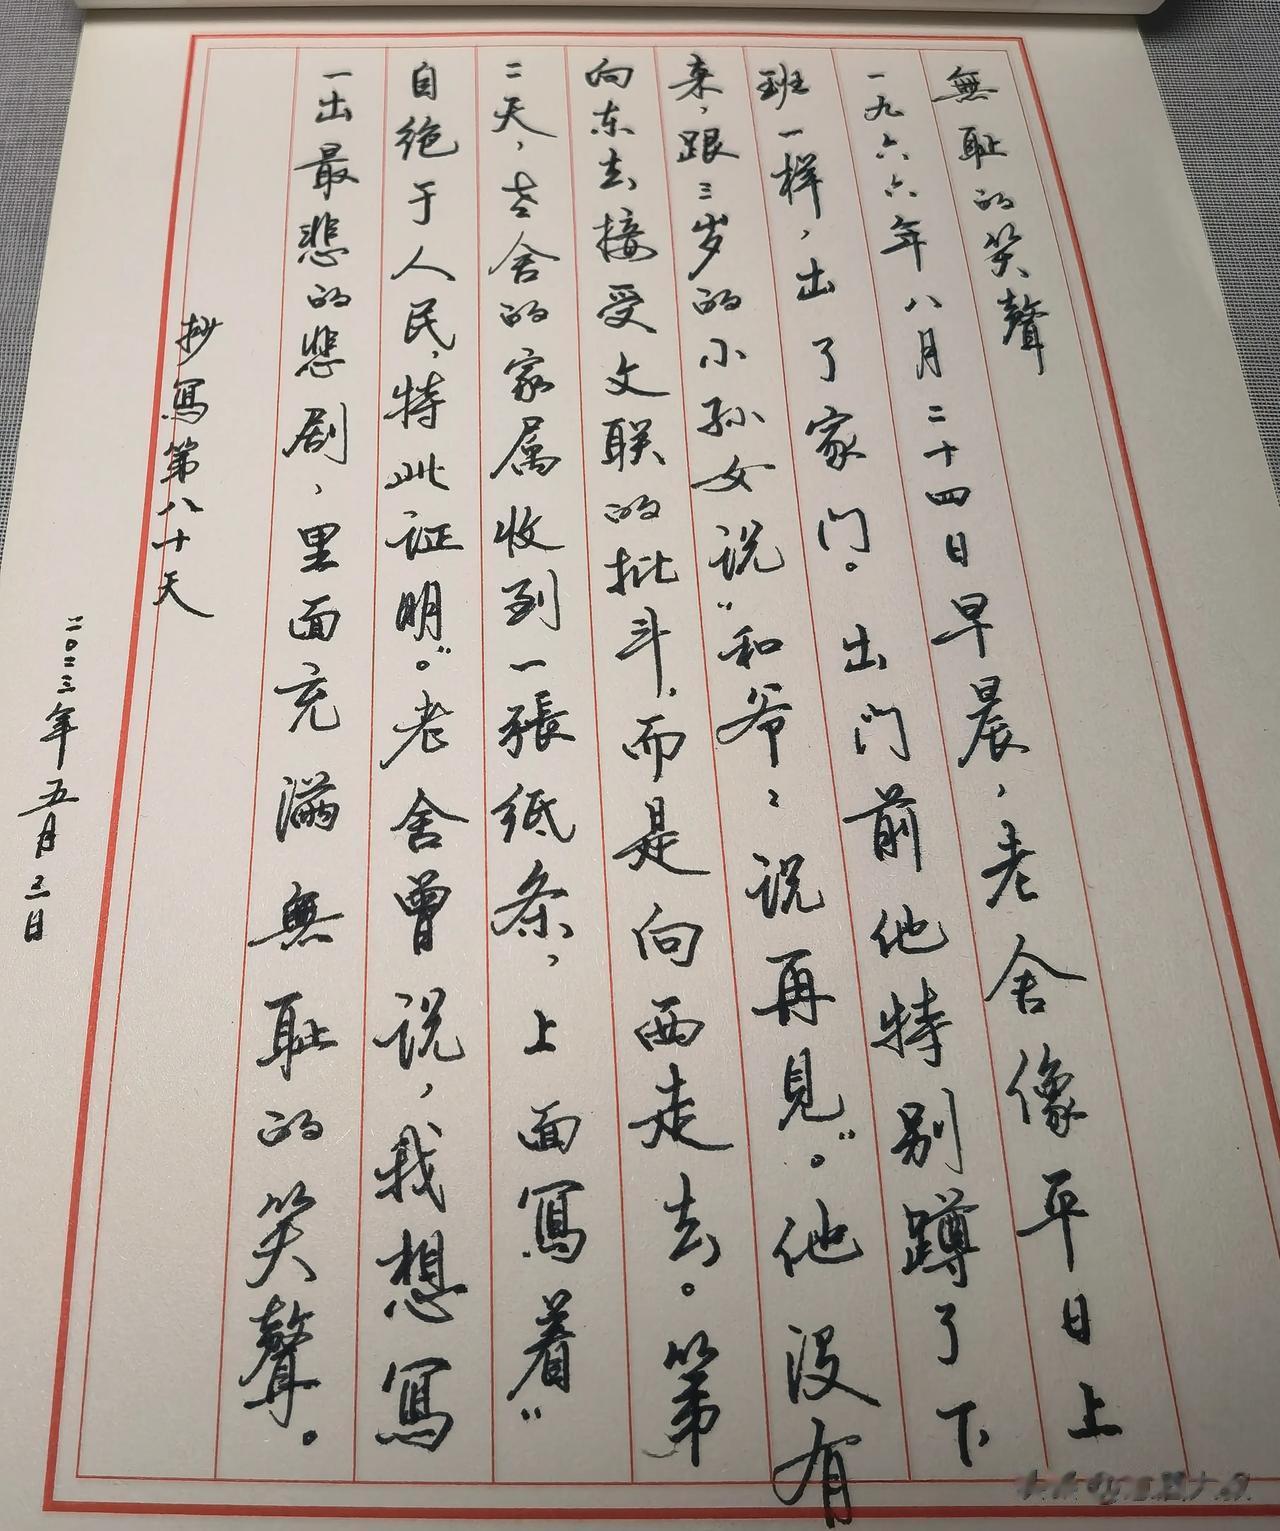 無耻的笑聲
一九六六年八月二十四日早晨，老舍像平日上
班一样，出了家门。出门前他特别蹲了下
来，跟三岁的小孙女说“和爷〻说再见”。他没有
向东去接受文联的批斗，而是向西走去。第
二天，老舍的家属收到一張纸条，上面寫着“
自绝于人民，特此证明。”老舍曾说，我想寫
一出最悲的悲剧，里面充滿無耻的笑聲。
抄寫第八十天
二〇二三年五月三日